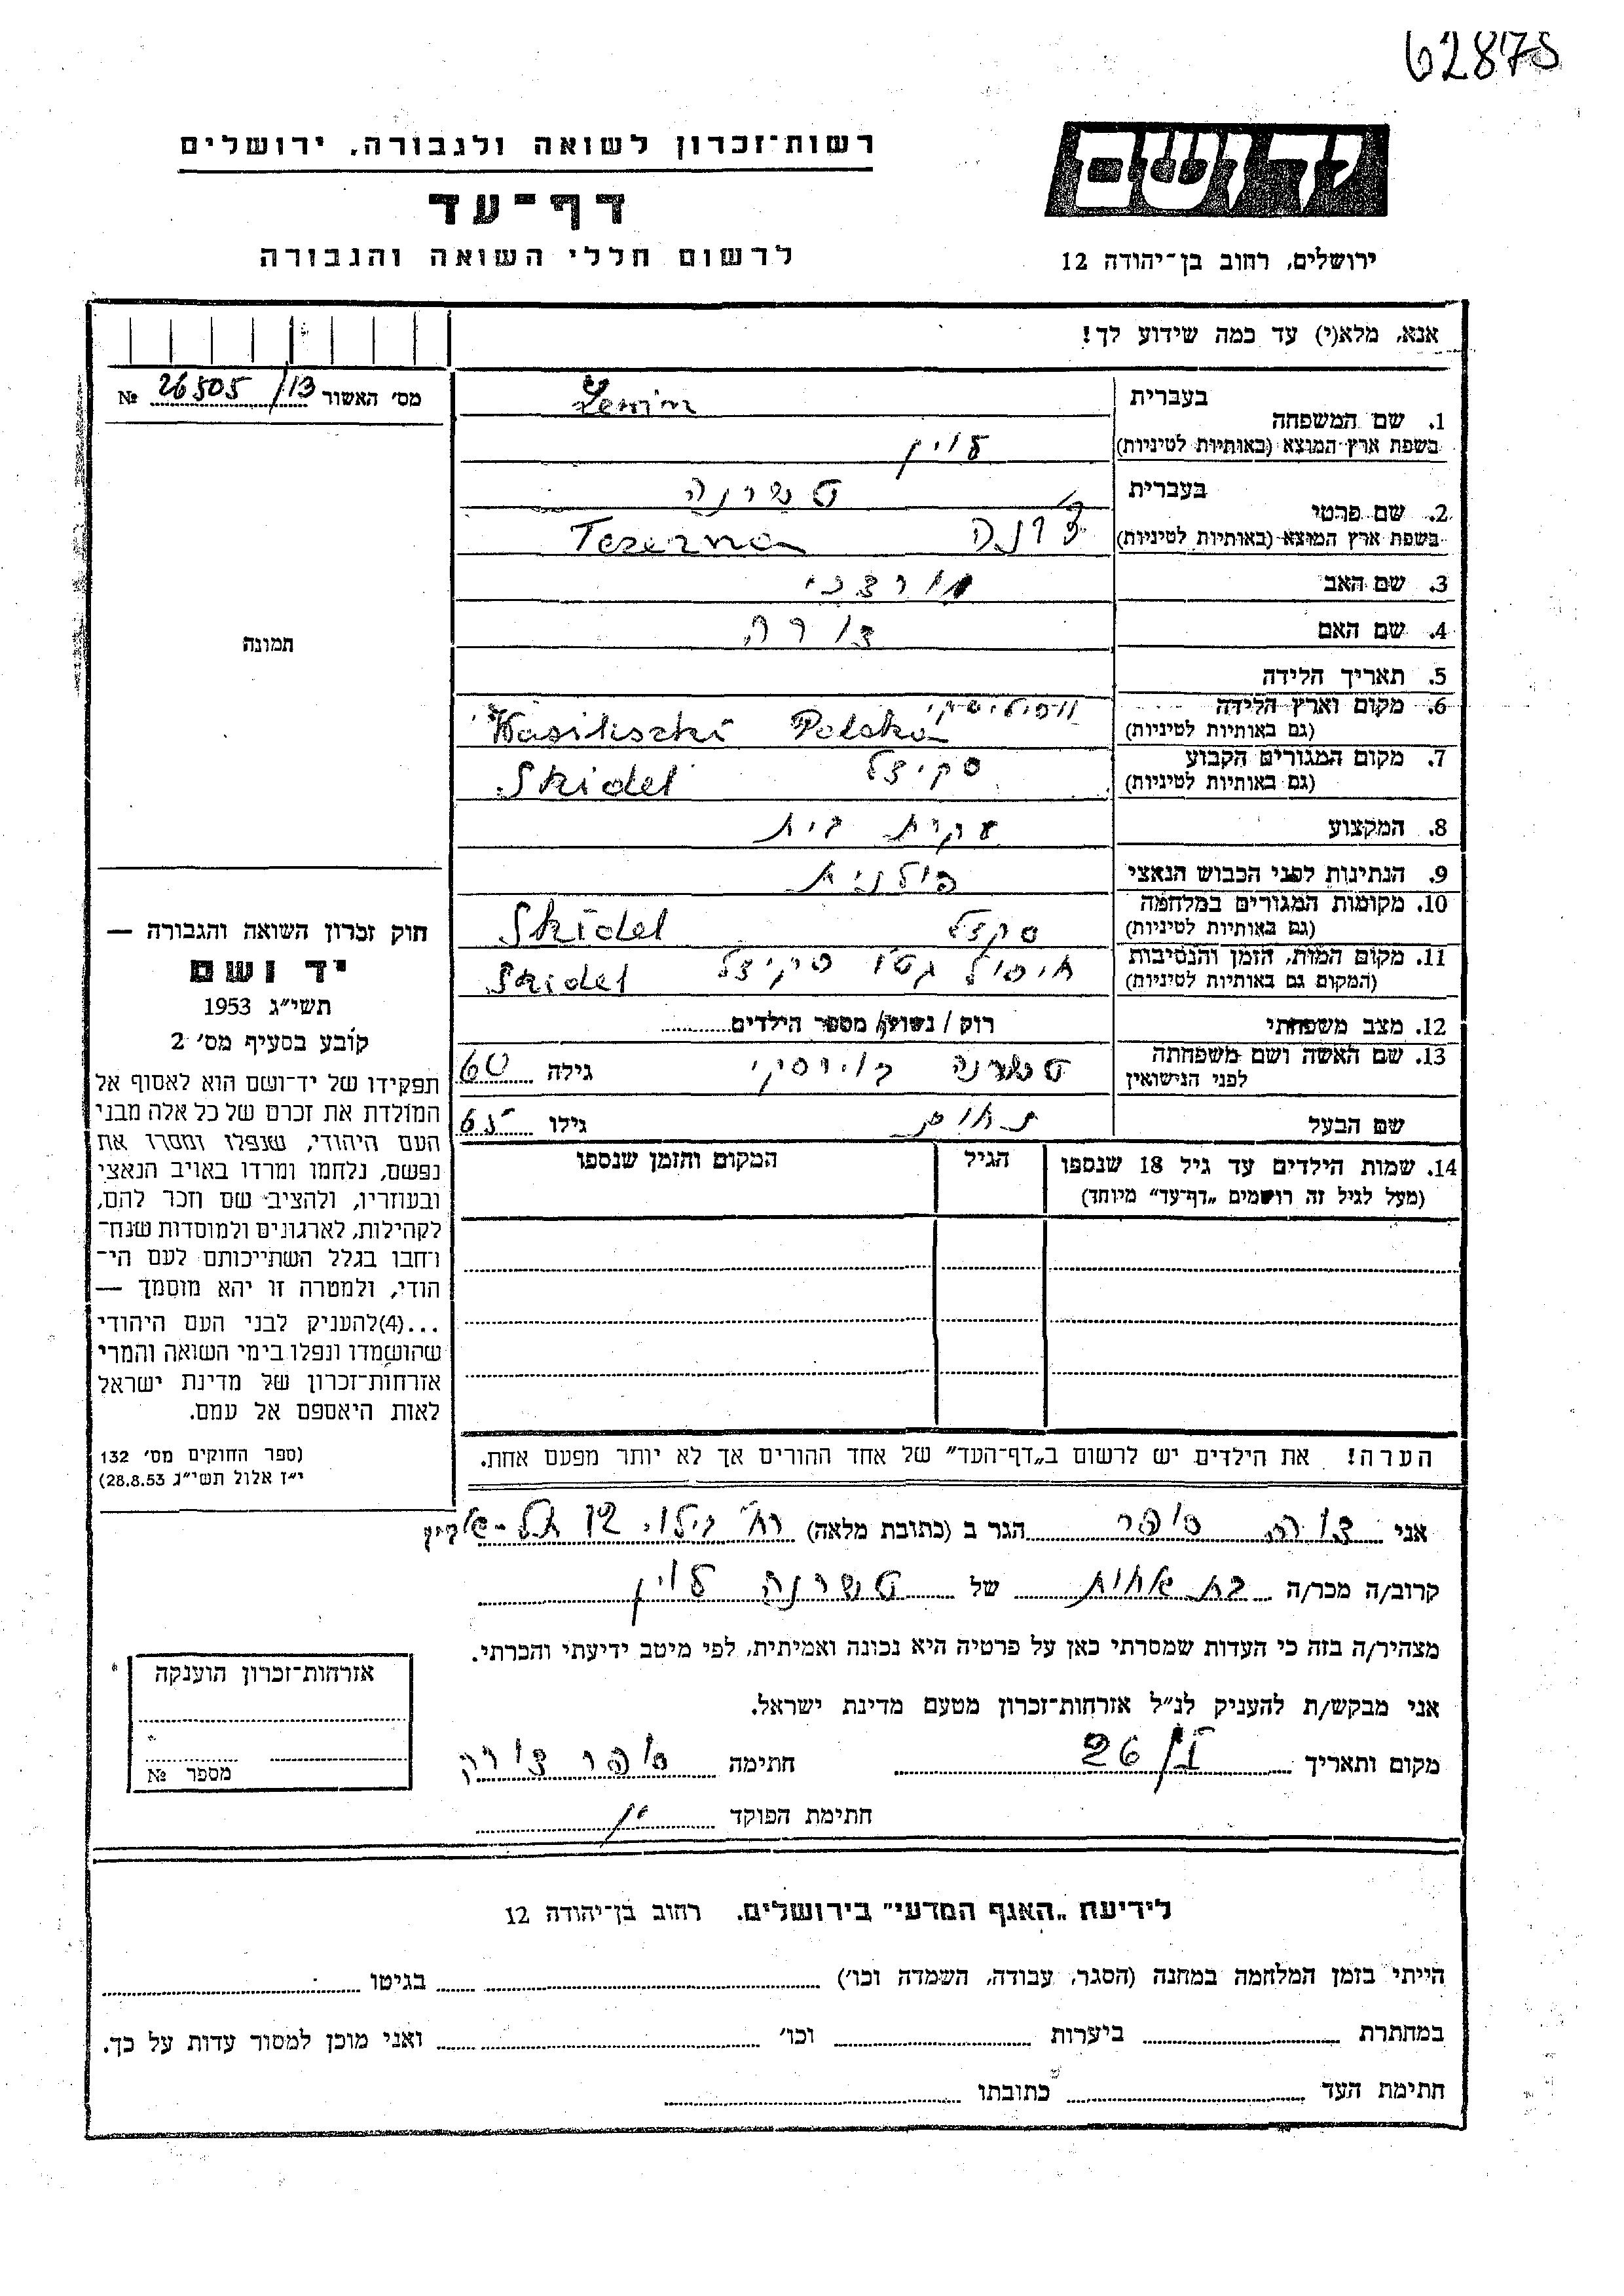 62875
רשות־זכרון לשואה ולגבורה, ירושלים
דף־עד
לרשום חללי השואה והגבורה
יד ושם
ירושלים, רחוב בן־יהודה 12
אנא, מלא(י) עד כמה שידוע לך!
מס׳ האשור 26505/13 №
תמונה
1. שם המשפחה
בעברית
Lewin
בשפת ארץ המוצא (באותיות לטיניות)
לוין
2. שם פרטי
בעברית
טשרנה
בשפת ארץ המוצא (באותיות לטיניות)
Teserna
3. שם האב
מורדכי
4. שם האם
דורה
5. תאריך הלידה
6. מקום וארץ הלידה
(גם באותיות לטיניות)
Wasiliszki Polska
7. מקום המגורים הקבוע סקידל
(גם באותיות לטיניות) Skidel
8. המקצוע עקרת בית
9. הנתינות לפני הכבוש הנאצי פולנית
10. מקומות המגורים במלחמה
(גם באותיות לטיניות) סקדל Skidel
11. מקום המות, הזמן והנסיבות חיסול גטו סקידל
(המקום גם באותיות לטיניות) Skidel
12. מצב משפחתי רוק / נשוי / מספר הילדים
13. שם האשה ושם משפחתה
לפני הנישואין טשרנה גילה 60
שם הבעל נחום גילו 65
14. שמות הילדים עד גיל 18 שנספו הגיל המקום והזמן שנספו
(מעל לגיל זה רושמים „דף־עד״ מיוחד)
הערה! את הילדים יש לרשום ב„דף־העד״ של אחד ההורים אך לא יותר מפעם אחת.
חוק זכרון השואה והגבורה —
יד ושם
תשי״ג 1953
קובע בסעיף מס׳ 2
תפקידו של יד־ושם הוא לאסוף אל
המולדת את זכרם של כל אלה מבני
העם היהודי, שנפלו ומסרו את
נפשם, נלחמו ומרדו באויב הנאצי
ובעוזריו, ולהציב שם וזכר להם,
לקהילות, לארגונים ולמוסדות שנח־
רבו בגלל השתייכותם לעם הי־
הודי, ולמטרה זו יהא מוסמך —
...(4)להעניק לבני העם היהודי
שהושמדו ונפלו בימי השואה והמרי
אזרחות־זכרון של מדינת ישראל
לאות היאספם אל עמם.
(ספר החוקים מס׳ 132
י״ז אלול תשי״ג 28.8.53)
אני דורה סופר הגר ב (כתובת מלאה) רח׳ בילוי 12 תל-אביב
קרוב/ה מכר/ה בת אחות של טשרנה לוין
מצהיר/ה בזה כי העדות שמסרתי כאן על פרטיה היא נכונה ואמיתית, לפי מיטב ידיעתי והכרתי.
אני מבקש/ת להעניק לנ״ל אזרחות־זכרון מטעם מדינת ישראל.
מקום ותאריך חתימה סופר דורה
חתימת הפוקד
אזרחות־זכרון הוענקה
מספר №
לידיעת „האגף המדעי״ בירושלים, רחוב בן־יהודה 12
הייתי בזמן המלחמה במחנה (הסגר, עבודה, השמדה וכו׳) בגיטו
במחתרת ביערות וכו׳ ואני מוכן למסור עדות על כך.
חתימת העד כתובתו